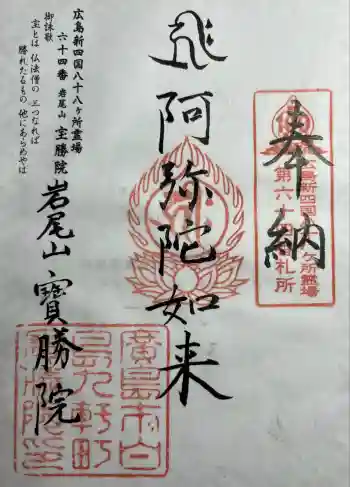 奉納
廣島新四国八十八ヶ所霊場
第六十四番札所
阿弥陀如来
岩尾山 寶勝院
広島新四国八十八ヶ所霊場
六十四番 岩尾山 宝勝院
御詠歌
宝とは 仏法僧の 三つなれば
勝れたるもの 他にあらめやは